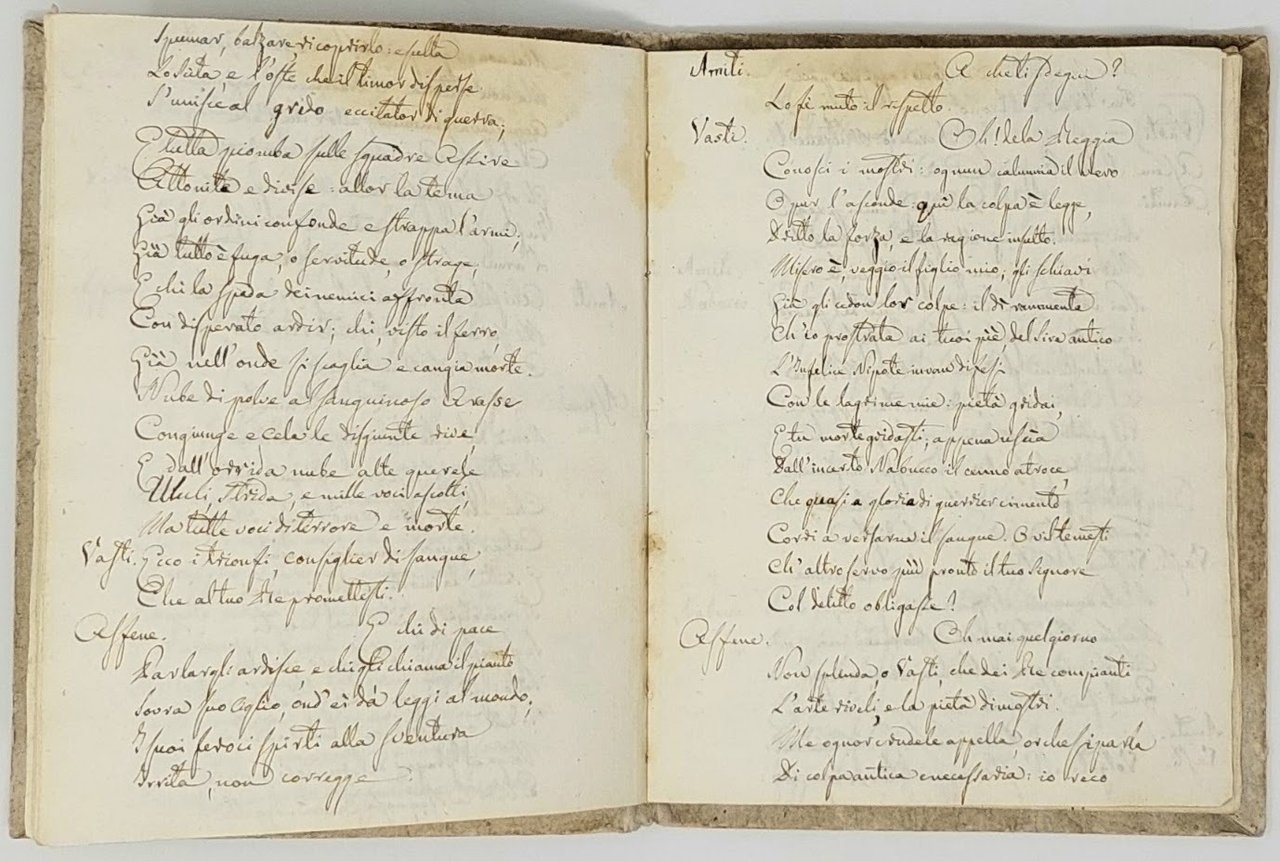 Spumar, balzare, ricoprirlo: esulta
Lo Scita e l'oste che il timor disperse
S'unisce al grido eccitator di guerra;
E tutta piomba sulle squadre Assire
Attonite e divise: allor la tema
Già gli ordini confonde e strappa l'armi,
Già tutto è fuga, o servitude, o strage;
E chi la spada dei nemici affronta
Con disperato ardir; chi, visto il ferro,
Già nell'onde si scaglia e cangia morte.
Nube di polve a sanguinoso Arasse
Congiunge e cela le disgiunte rive,
E dall'orrida nube alte querele
Ululi, strida, e mille voci ascolti,
Ma tutte voci di terrore e morte.
Vasti. Ecco i trionfi consiglier di sangue,
Che al tuo Re promettesti.
Asfene. E chi di pace
Parlargli ardisce, e chi gli chiama il pianto
Sovra suo ciglio, ond' ei dà leggi al mondo,
I suoi feroci spirti alla sventura
Irrita, non corregge
Amiti. A che ti sdegni?
Lo fè muto il rispetto.
Vasti. Oh! dela Reggia
Conosci i mostri: ognun calunnia il vero
O pur l'asconde: quì la colpa è legge,
Dritto la forza, e la ragione insulto.
Misero è, veggio il figlio mio; gli schiavi
Già gli cedon lor colpe: il dì rammenta
Ch'io prostrata ai tuoi piè del Sire antico
L'Infelice Nipote invan difesi
Con le lagrime mie: pietà gridai,
E tu morte gridasti; appena uscia
Dall'incerto Nabucco il cenno atroce,
Che quasi a gloria di guerrier cimento
Corri a versarne il sangue. O vil temesti
Ch'altro servo più pronto il tuo Signore
Col delitto obligasse?
Asfene. Oh mai quel giorno
Non splenda o Vasti, che dei Re compianti
L'arte riveli, e la pietà dimostri.
Me ognor crudele appella, or che si parla
Di colpa antica e necessaria: io reco